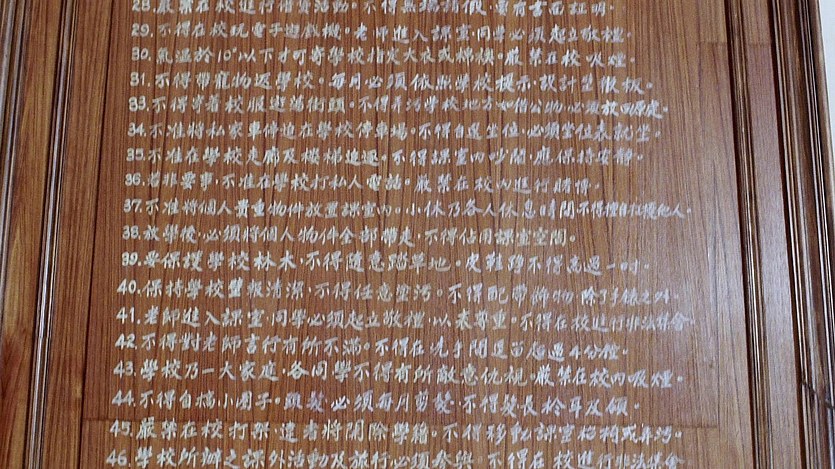 28.嚴禁在校進行借貸活動。不得無端請假,要有書面証明。
29.不得在校玩電子遊戲機。老師進入課室,同學必須起立敬禮。
30.氣温於10°以下才可穿學校指定大衣或棉襖。嚴禁在校吸煙。
31.不得帶寵物返學校。每月必須依照學校提示,設計壁報板。
33.不得穿着校服遊蕩街頭。不得弄污學校地方,如借公物,必須放回原處。
34.不准將私家車停泊在學校停車場。不得自選坐位,必須坐位表就坐。
35.不准在學校走廊及樓梯追逐。不得課室內吵鬧,應保持安靜。
36.若非要事,不准在學校打私人電話。嚴禁在校內進行賭博。
37.不准將個人貴重物件放置課室內。小休乃各人休息時間不得擅自打擾他人。
38.放學後,必須將個人物件全部帶走,不得佔用課室空間。
39.要保護學校林木,不得隨意踏草地。皮鞋踭不得高過一吋。
40.保持學校壁報清潔,不得任意塗污。不得配帶飾物,除手錶之外。
41.老師進入課室,同學必須起立敬禮,以表尊重。不得在校進行非法集會。
42.不得對老師言行有所不滿。不得在洗手間逗留超過4分鐘。
43.學校乃一大家庭,各同學不得有所敵意仇視。嚴禁在校內吸煙。
44.不得自搞小圈子。頭髮必須每月剪髮,不得髮長於耳及領。
45.嚴禁在校打架,違者將開除學籍。不得移動課室枱椅或弄污。
46.學校所辦之課外活動及旅行必須參與。不得在校進行非法集會